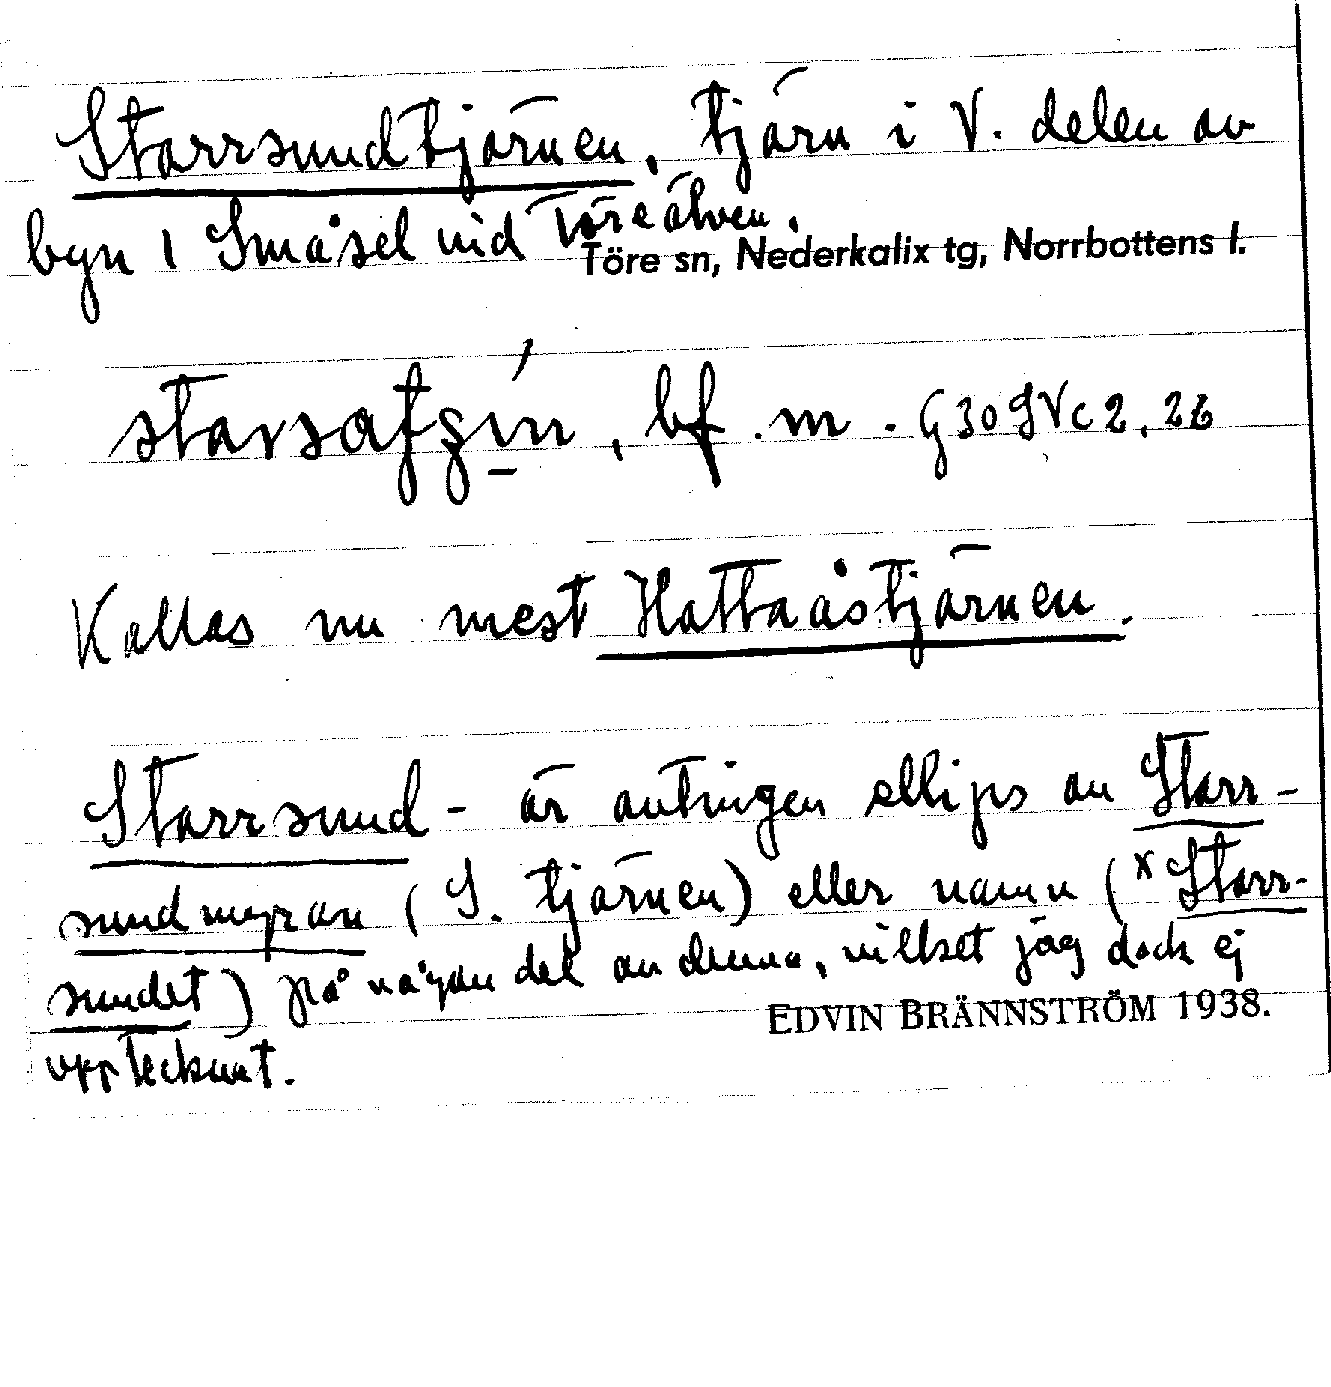 Starrsundtjärnen, tjärn i V. delen av
byn 1 Småsel vid Töreälven.
Töre sn, Nederkalix tg, Norrbottens l.
bf. m. G30 SVc2, 26
Kallas nu mest Hattaåstjärnen.
Starrsund- är antingen ellips av Starr-
sundmyran (S. tjärnen) eller namn (*Starr-
sundet) på någon del av denna, vilket jag dock ej
EDVIN BRÄNNSTRÖM 1938.
upptecknat.